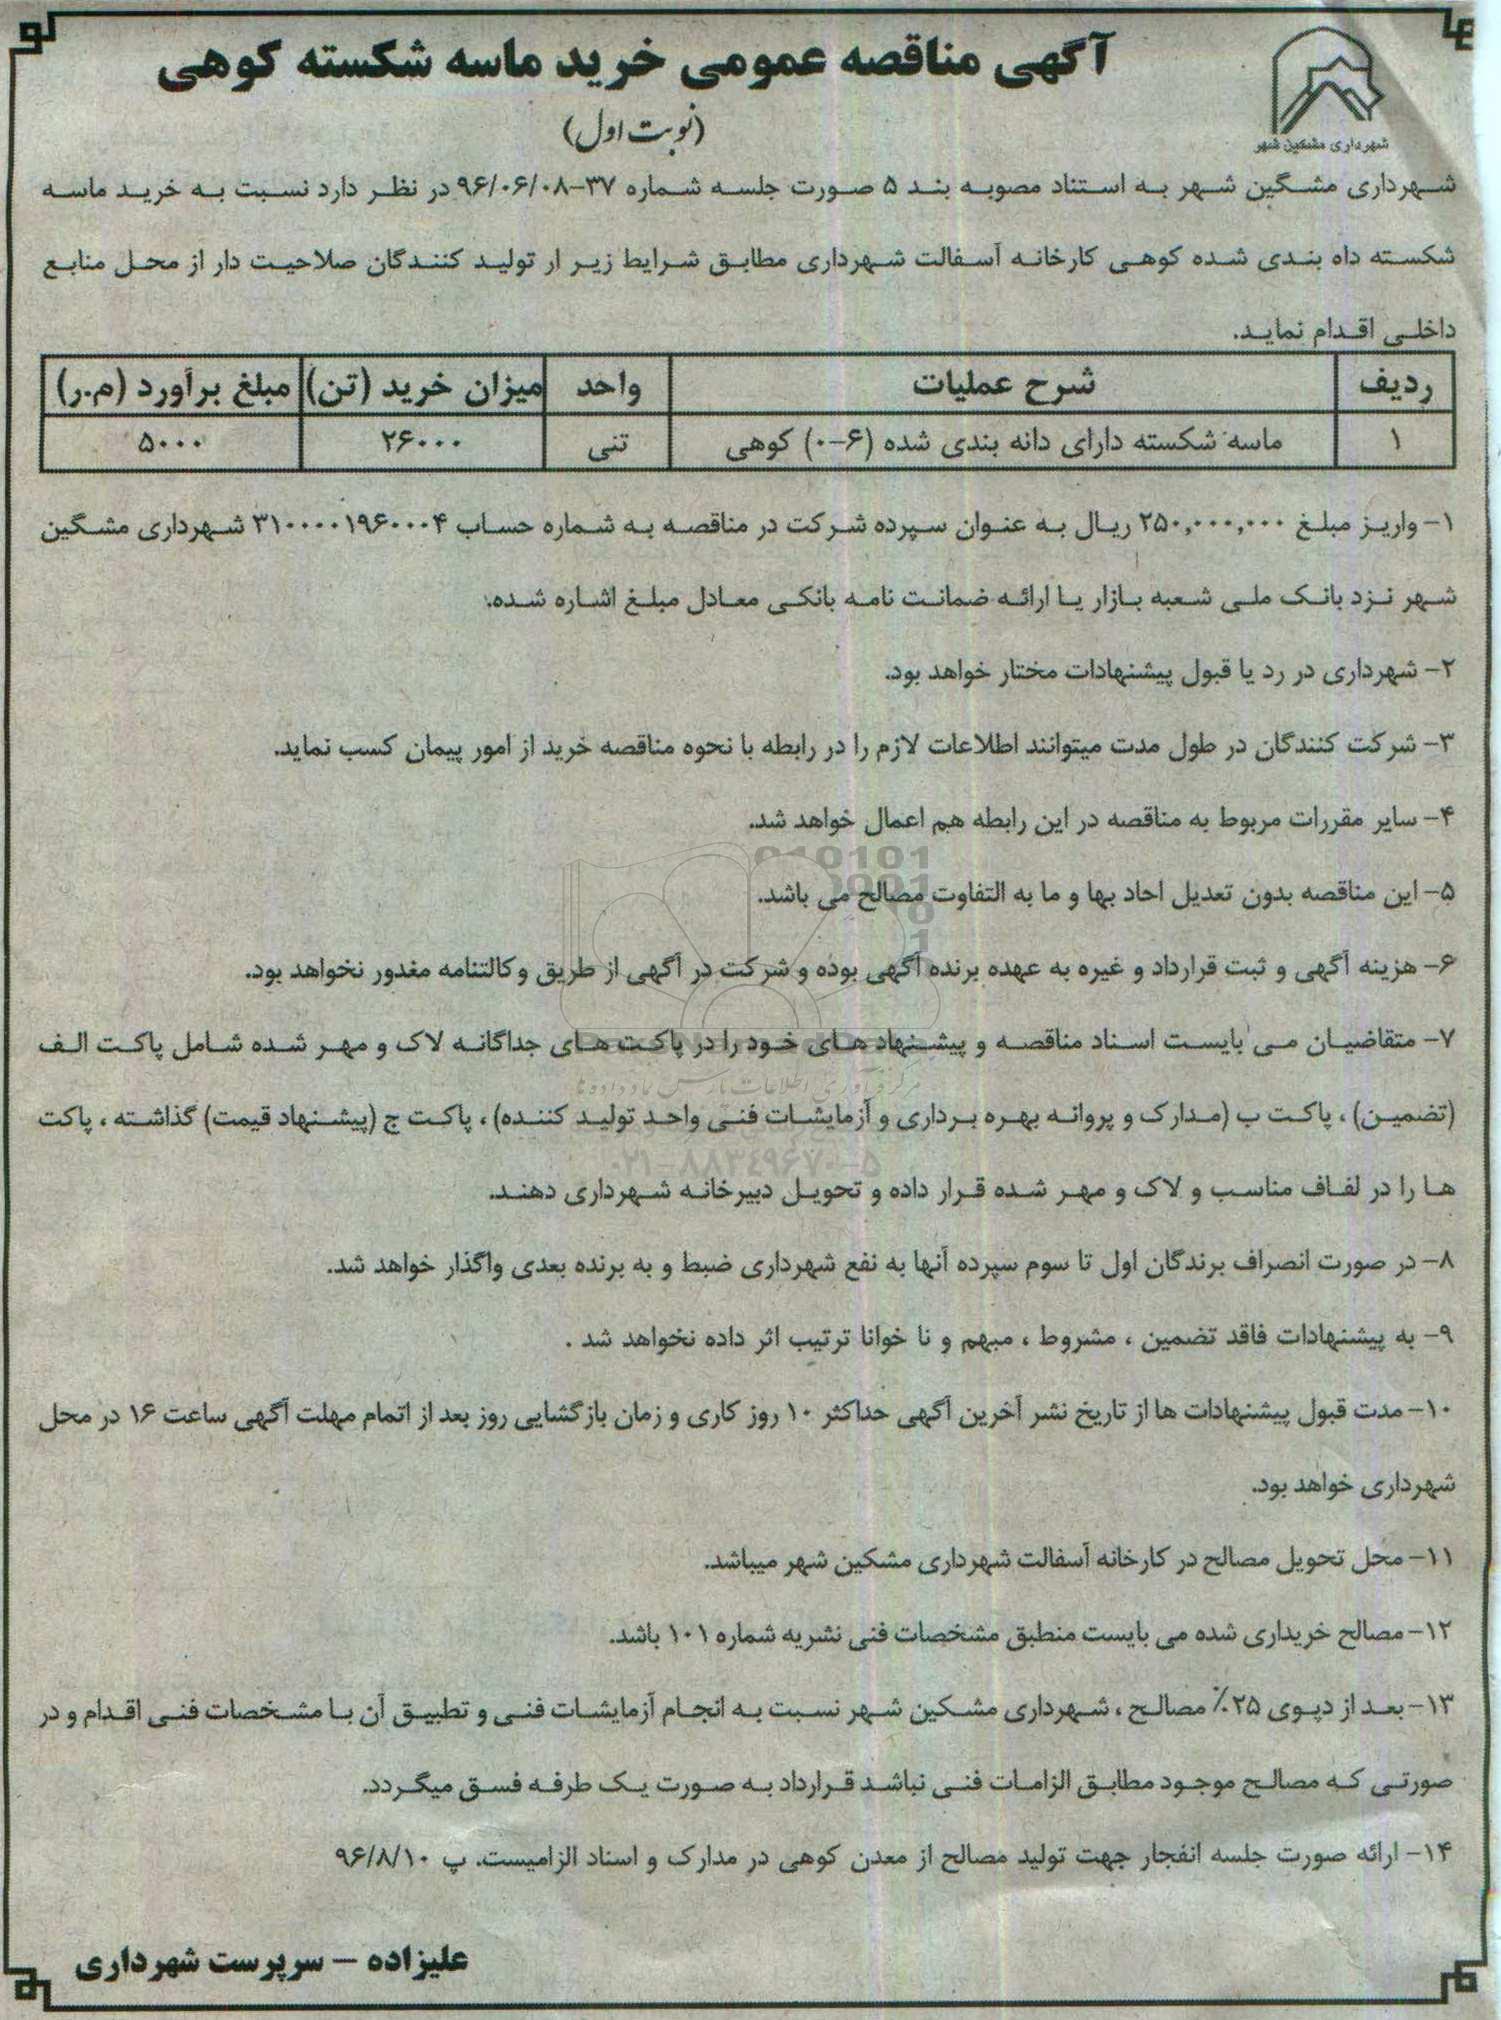 آگهی مناقصه عمومی خرید ماسه شکسته کوهی
(نوبت اول)
شهرداری مشکین شهر
شهرداری مشگین شهر به استناد مصوبه بند ۵ صورت جلسه شماره ۳۷-۹۶/۰۶/۰۸ در نظر دارد نسبت به خرید ماسه
شکسته داه بندی شده کوهی کارخانه آسفالت شهرداری مطابق شرایط زیر ار تولید کنندگان صلاحیت دار از محل منابع
داخلی اقدام نماید.
ردیف شرح عملیات واحد میزان خرید (تن) مبلغ برآورد (م.ر)
۱ ماسه شکسته دارای دانه بندی شده (۶-۰) کوهی تنی ۲۶۰۰۰ ۵۰۰۰
۱- واریز مبلغ ۲۵۰,۰۰۰,۰۰۰ ریال به عنوان سپرده شرکت در مناقصه به شماره حساب ۳۱۰۰۰۰۱۹۶۰۰۰۴ شهرداری مشگین
شهر نزد بانک ملی شعبه بازار یا ارائه ضمانت نامه بانکی معادل مبلغ اشاره شده.
۲- شهرداری در رد یا قبول پیشنهادات مختار خواهد بود.
۳- شرکت کنندگان در طول مدت میتوانند اطلاعات لازم را در رابطه با نحوه مناقصه خرید از امور پیمان کسب نماید.
۴- سایر مقررات مربوط به مناقصه در این رابطه هم اعمال خواهد شد.
۵- این مناقصه بدون تعدیل احاد بها و ما به التفاوت مصالح می باشد.
۶- هزینه آگهی و ثبت قرارداد و غیره به عهده برنده آگهی بوده و شرکت در آگهی از طریق وکالتنامه مغدور نخواهد بود.
۷- متقاضیان می بایست اسناد مناقصه و پیشنهاد های خود را در پاکت های جداگانه لاک و مهر شده شامل پاکت الف
(تضمین) ، پاکت ب (مدارک و پروانه بهره برداری و آزمایشات فنی واحد تولید کننده) ، پاکت ج (پیشنهاد قیمت) گذاشته ، پاکت
ها را در لفاف مناسب و لاک و مهر شده قرار داده و تحویل دبیرخانه شهرداری دهند.
۰۲۱-۸۸۳۴۹۶۷۰-۵
۸- در صورت انصراف برندگان اول تا سوم سپرده آنها به نفع شهرداری ضبط و به برنده بعدی واگذار خواهد شد.
۹- به پیشنهادات فاقد تضمین ، مشروط ، مبهم و نا خوانا ترتیب اثر داده نخواهد شد .
۱۰- مدت قبول پیشنهادات ها از تاریخ نشر آخرین آگهی حداکثر ۱۰ روز کاری و زمان بازگشایی روز بعد از اتمام مهلت آگهی ساعت ۱۶ در محل
شهرداری خواهد بود.
۱۱- محل تحویل مصالح در کارخانه آسفالت شهرداری مشکین شهر میباشد.
۱۲- مصالح خریداری شده می بایست منطبق مشخصات فنی نشریه شماره ۱۰۱ باشد.
۱۳- بعد از دپوی ۲۵٪ مصالح ، شهرداری مشکین شهر نسبت به انجام آزمایشات فنی و تطبیق آن با مشخصات فنی اقدام و در
صورتی که مصالح موجود مطابق الزامات فنی نباشد قرارداد به صورت یک طرفه فسق میگردد.
۱۴- ارائه صورت جلسه انفجار جهت تولید مصالح از معدن کوهی در مدارک و اسناد الزامیست. پ ۹۶/۸/۱۰
علیزاده - سرپرست شهرداری